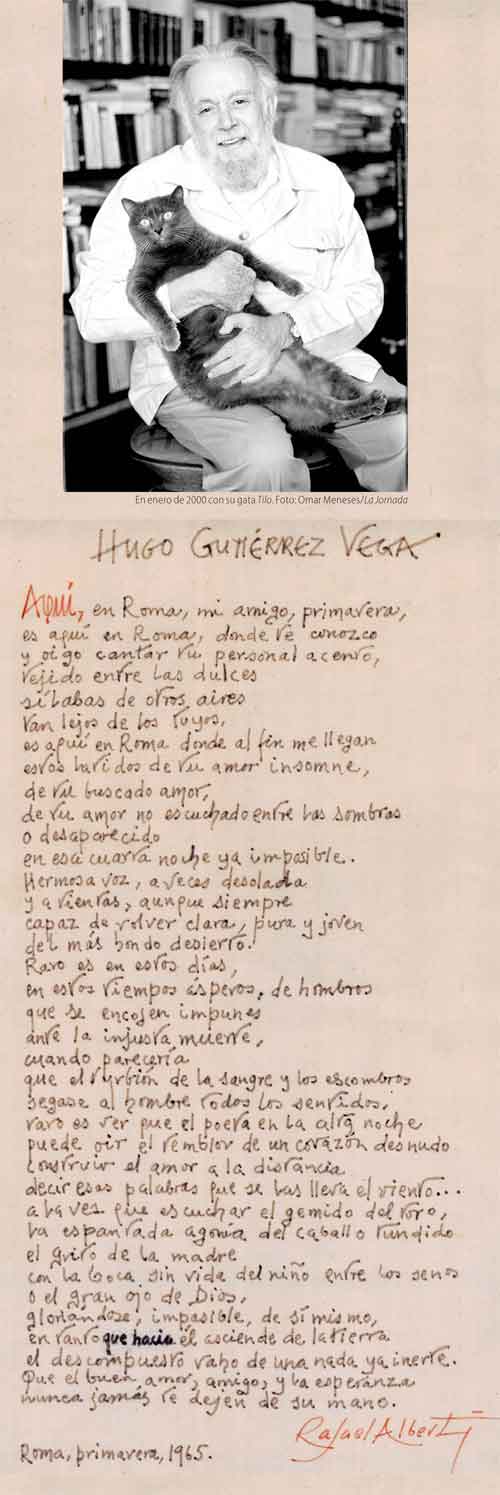 En enero de 2000 con su gata Tilo. Foto: Omar Meneses/La Jornada
HUGO GUTIÉRREZ VEGA
AQUÍ, en Roma, mi amigo, primavera,
es aquí en Roma, donde te conozco
y oigo cantar tu personal acento,
tejido entre las dulces
sílabas de otros aires
tan lejos de los tuyos,
es aquí en Roma donde al fin me llegan
estos latidos de tu amor insomne,
de tu buscado amor,
de tu amor no escuchado entre las sombras
o desaparecido
en esa cuarta noche ya imposible.
Hermosa voz, a veces desolada
y a tientas, aunque siempre
capaz de volver clara, pura y joven
del más hondo desierto.
Raro es en estos días,
en estos tiempos ásperos, de hombros
que se encojen impunes
ante la injusta muerte,
cuando parecería
que el turbión de la sangre y los escombros
segase al hombre todos los sentidos,
raro es ver que el poeta en la alta noche
puede oír el temblor de un corazón desnudo
construir el amor a la distancia
decir esas palabras que se las lleva el viento...
a la vez que escuchar el gemido del toro,
la espantada agonía del caballo tundido
el grito de la madre
con la boca sin vida del niño entre los senos
o el gran ojo de Dios,
gloriándose, impasible, de sí mismo,
en tanto que hacia él asciende de la tierra
el descompuesto vaho de una nada ya inerte.
Que el buen amor, amigo, y la esperanza
nunca jamás te dejen de su mano.
Rafael Alberti
Roma, primavera, 1965.